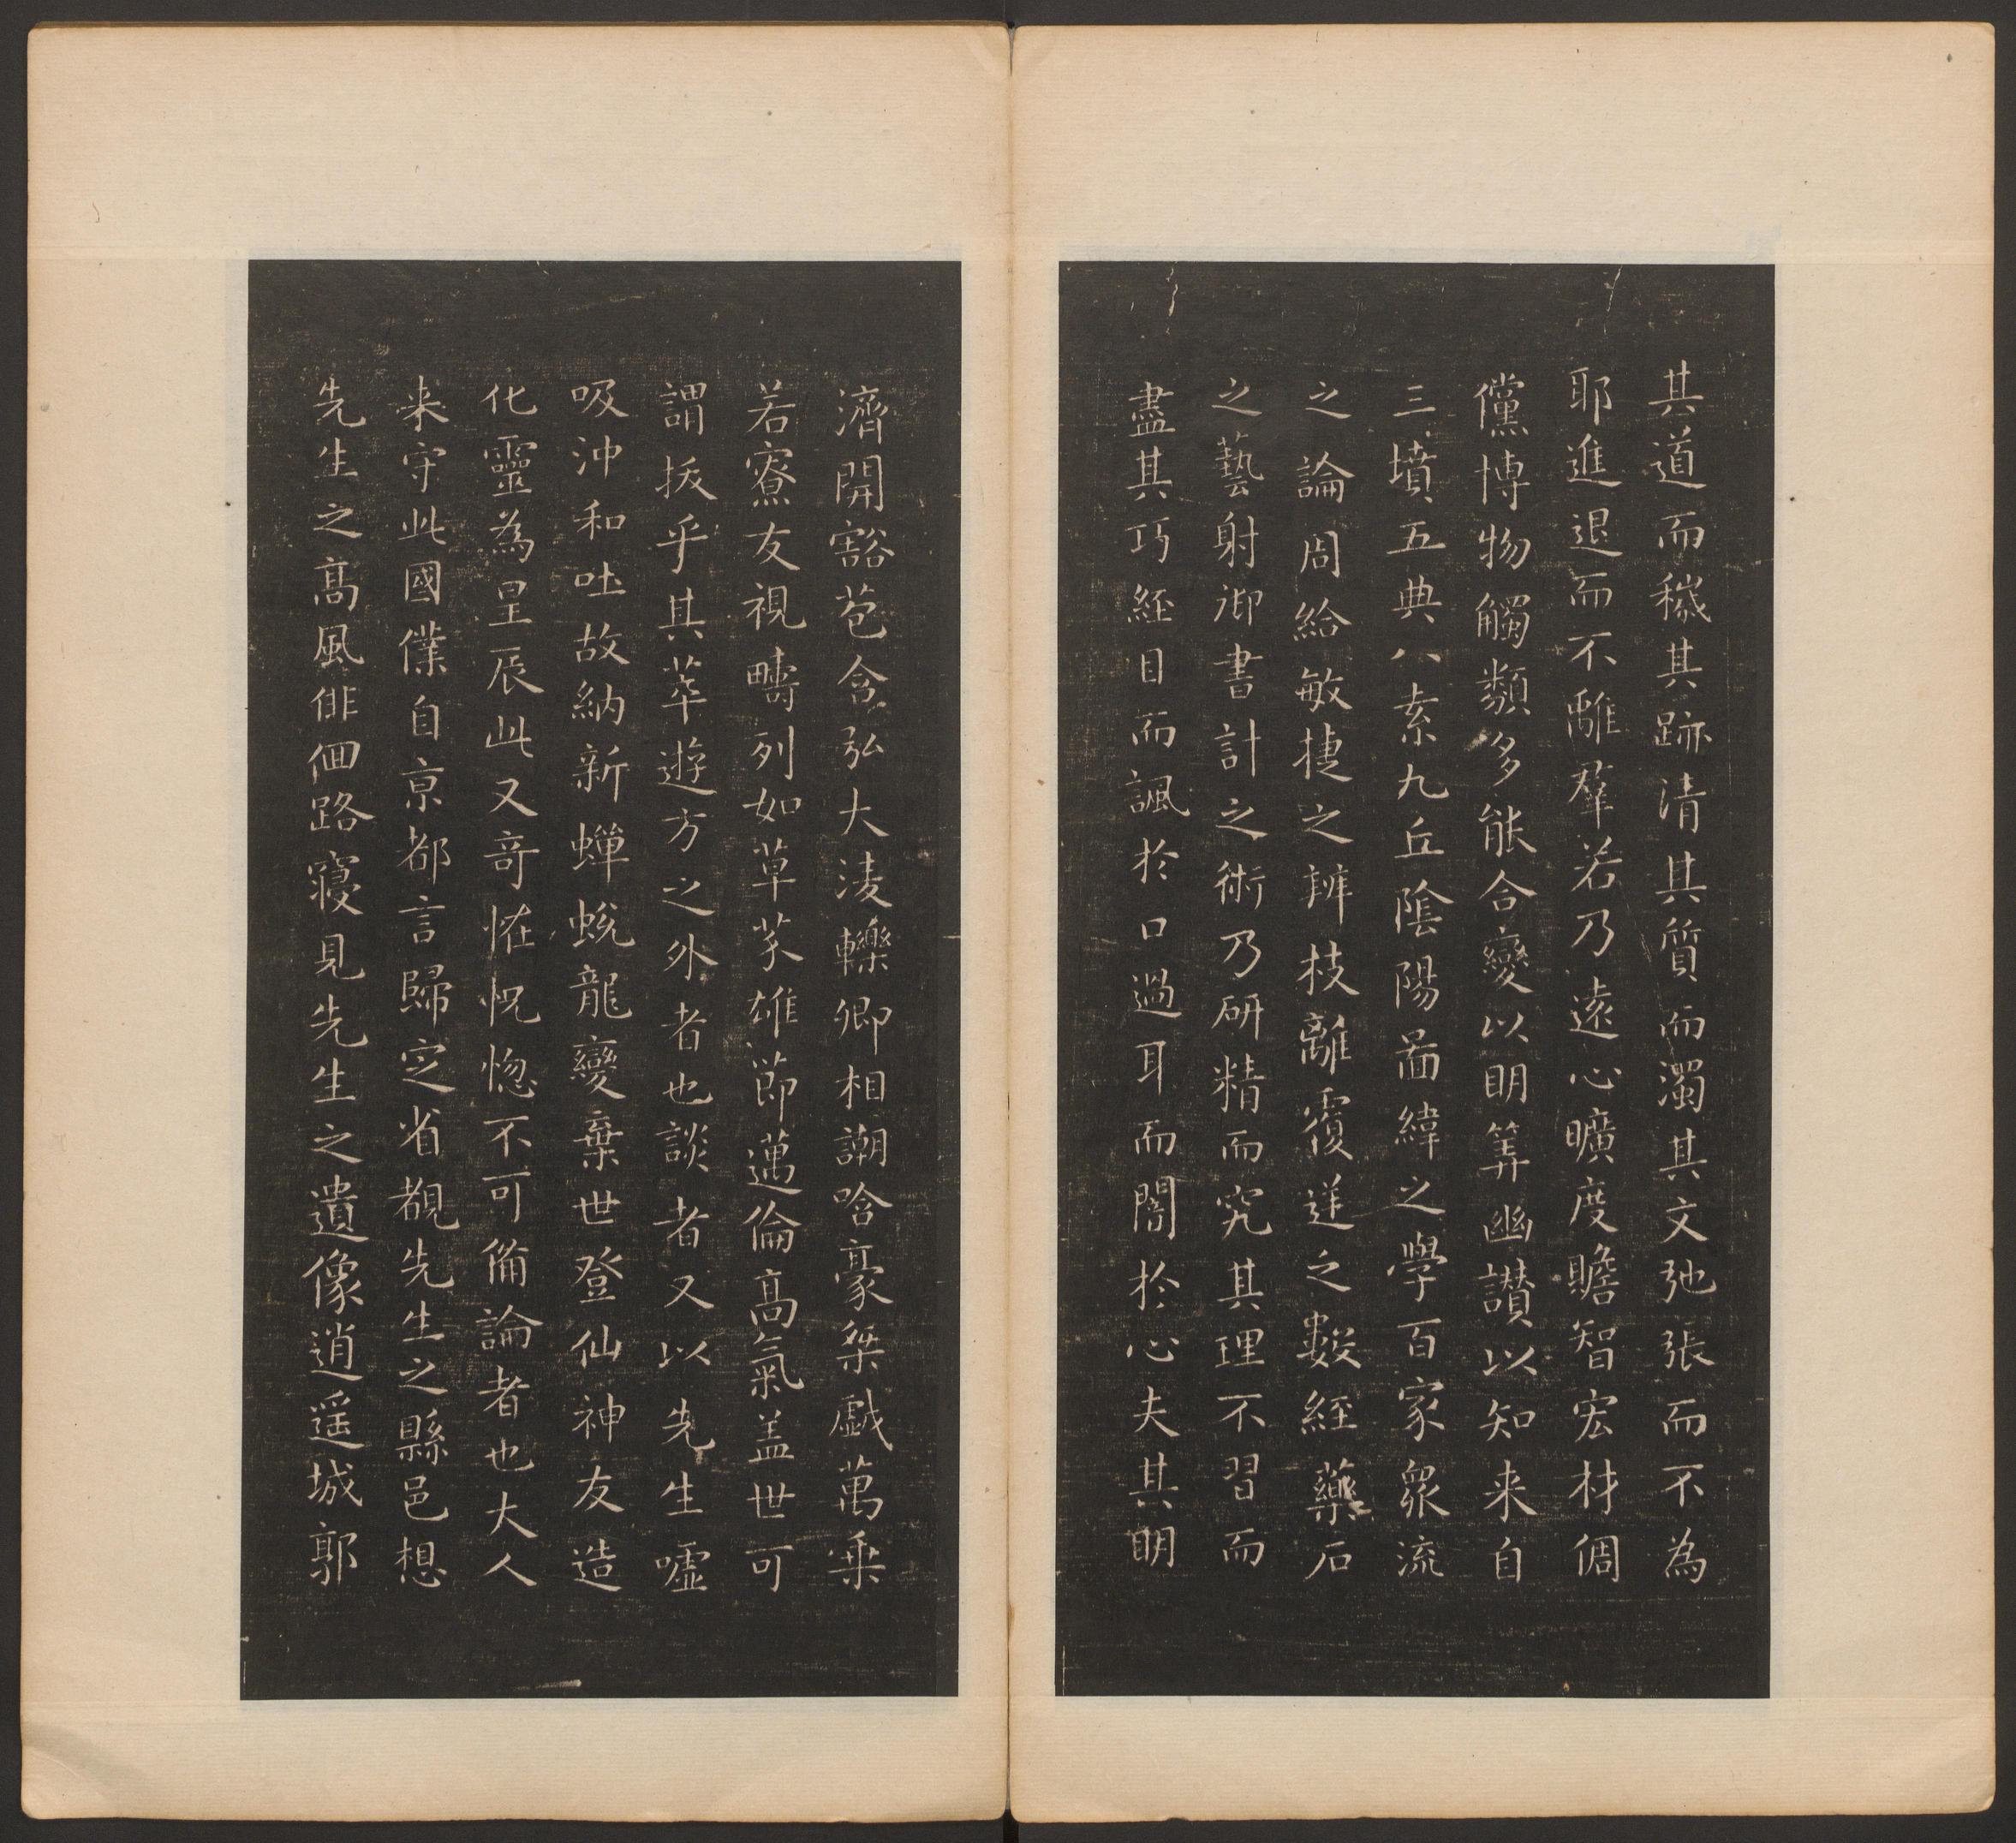 其道而穢其跡清其質而濁其文弛張而不為
耶進退而不離羣若乃遠心曠度贍智宏材倜
儻博物觸類多能合變以明筭幽讃以知来自
三墳五典八索九丘陰陽啚緯之學百家衆流
之論周給敏捷之辨枝離覆逆之數經藥石
之藝射御書計之術乃研精而究其理不習而
盡其巧經目而諷於口過耳而闇於心夫其明
濟開豁苞含弘大淩轢卿相謿哈豪桀戱萬乗
若寮友視疇列如草芥雄節邁倫髙氣盖世可
謂拔乎其萃遊方之外者也談者又以先生嘘
吸沖和吐故納新蟬蛻龍變棄世登仙神友造
化靈為星辰此又竒恠怳惚不可偹論者也大人
来守此國僕自京都言歸定省覩先生之縣邑想
先生之髙風俳佪路寢見先生之遺像逍遥城郭